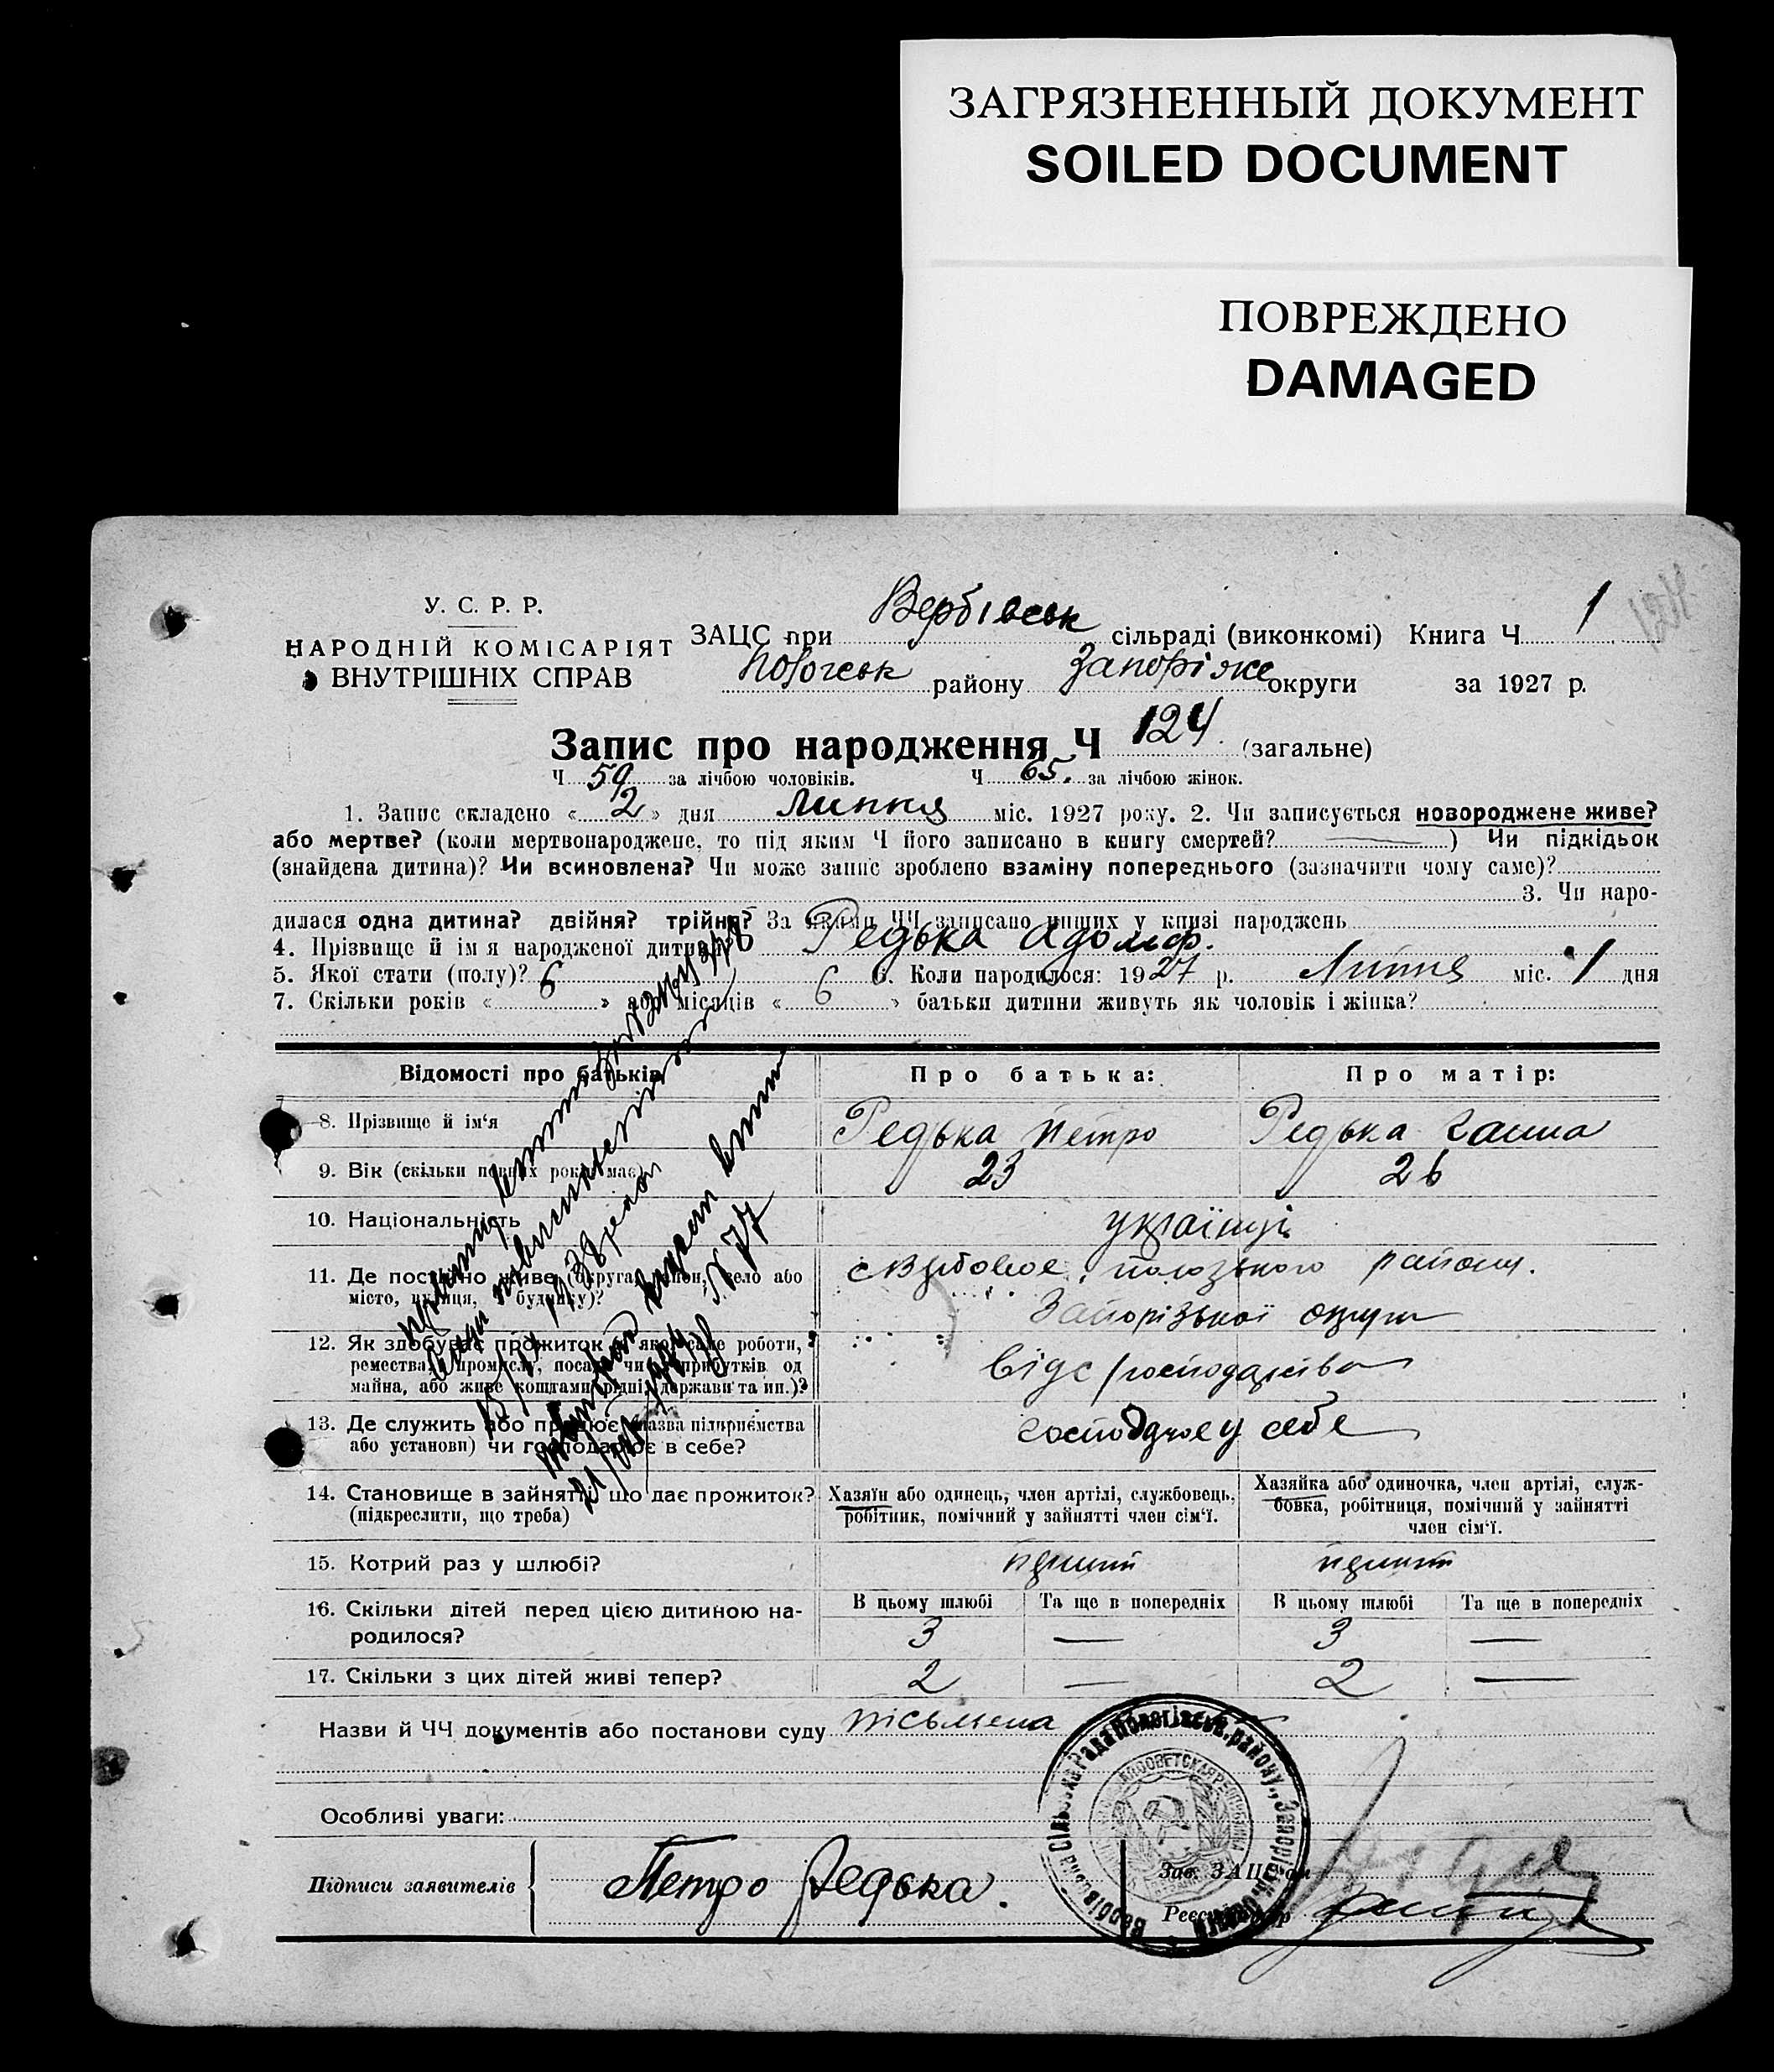 ЗАГРЯЗНЕННЫЙ ДОКУМЕНТ
SOILED DOCUMENT
ПОВРЕЖДЕНО
DAMAGED
У. С. Р. Р.
НАРОДНІЙ КОМІСАРІЯТ
ВНУТРІШНІХ СПРАВ
ЗАЦС при Вербівськ сільраді (виконкомі) Книга Ч 1
Пологськ району Запоріжс округи за 1927 р.
Запис про народження Ч 124 (загальне)
Ч 59 за лічбою чоловіків. Ч 65. за лічбою жінок.
1. Запис складено « 2 » дня Липня міс. 1927 року. 2. Чи записується новороджене живе?
або мертве? (коли мертвонароджене, то під яким Ч його записано в книгу смертей? — ) Чи підкідьок
(знайдена дитина)? Чи всиновлена? Чи може запис зроблено взаміну попереднього (зазначити чому саме)?
3. Чи наро-
дилася одна дитина? двійня? трійня? За якими ЧЧ записано інших у книзі народжень
4. Прізвище й ім я народженої дитини? Редька Адольф.
5. Якої стати (полу)? 6. Коли народилося: 1927 р. Липня міс. 1 дня
7. Скільки років « 6 » або місяців « 6 » батьки дитини живуть як чоловік і жінка?
Відомості про батьків
Про батька:
Про матір:
8. Прізвище й ім'я
Редька Петро
Редька Ганна
9. Вік (скільки повних років має)
23
26
10. Національність
українці
11. Де постійно живе (округа, район, село або
місто, вулиця, ч будинку)?
с Вербовое, пологського району.
Запорізької округи
12. Як здобуває прожиток (з якої саме роботи,
ремества, промислу, посади чи з прибутків од
майна, або живе коштами рідні, держави та ин.)?
від с/господарства
13. Де служить або працює (назва підприємства
або установи) чи господарює в себе?
господарює у себе
14. Становище в зайнятті, що дає прожиток?
(підкреслити, що треба)
Хазяїн або одинець, член артілі, службовець,
робітник, помічний у зайнятті член сім'ї.
Хазяйка або одиночка, член артілі, служ-
бовка, робітниця, помічний у зайнятті
член сім'ї.
15. Котрий раз у шлюбі?
перший
перший
16. Скільки дітей перед цією дитиною на-
родилося?
В цьому шлюбі Та ще в попередніх В цьому шлюбі Та ще в попередніх
3 — 3 —
17. Скільки з цих дітей живі тепер?
2 — 2 —
Назви й ЧЧ документів або постанови суду письмена
Особливі уваги:
Підписи заявителів
Петро Редька.
Зав. ЗАЦС'ом
Реєстратор